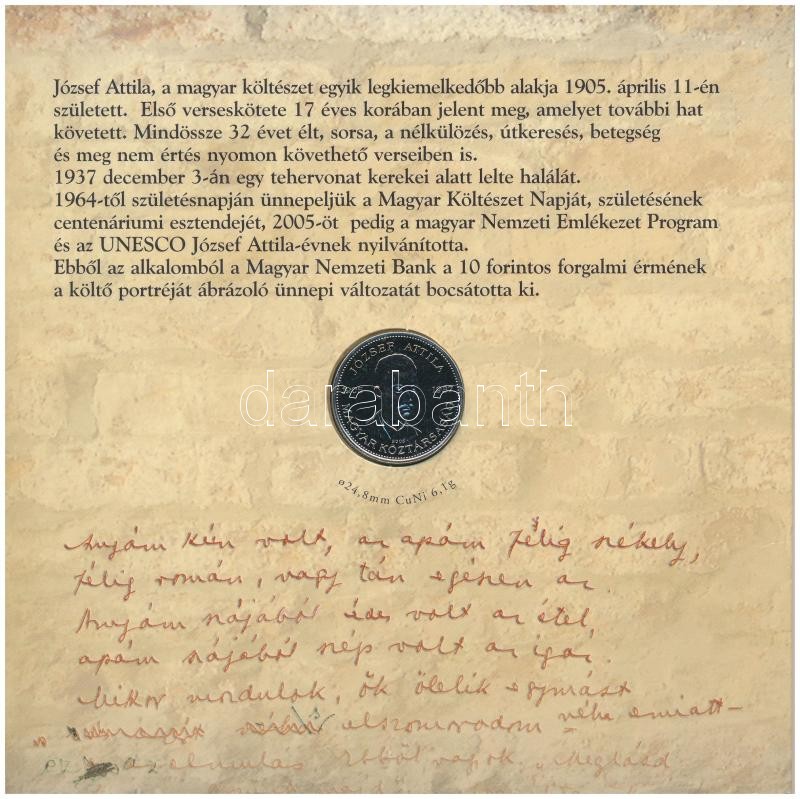 József Attila, a magyar költészet egyik legkiemelkedőbb alakja 1905. április 11-én
született. Első verseskötete 17 éves korában jelent meg, amelyet további hat
követett. Mindössze 32 évet élt, sorsa, a nélkülözés, útkeresés, betegség
és meg nem értés nyomon követhető verseiben is.
1937 december 3-án egy tehervonat kerekei alatt lelte halálát.
1964-től születésnapján ünnepeljük a Magyar Költészet Napját, születésének
centenáriumi esztendejét, 2005-öt pedig a magyar Nemzeti Emlékezet Program
és az UNESCO József Attila-évnek nyilvánította.
Ebből az alkalomból a Magyar Nemzeti Bank a 10 forintos forgalmi érmének
a költő portréját ábrázoló ünnepi változatát bocsátotta ki.
JÓZSEF ATTILA
MAGYAR KÖZTÁRSASÁG
2005
darabanth
ø24,8mm CuNi 6,1g
Anyám kún volt, az apám félig székely,
félig román, vagy tán egészen az.
Anyám szájából édes volt az étel,
apám szájából szép volt az igaz.
Mikor mozdulok, ők ölelik egymást
elszomorodom néha emiatt–
az elmulás. Ebből vagyok. „Meglásd